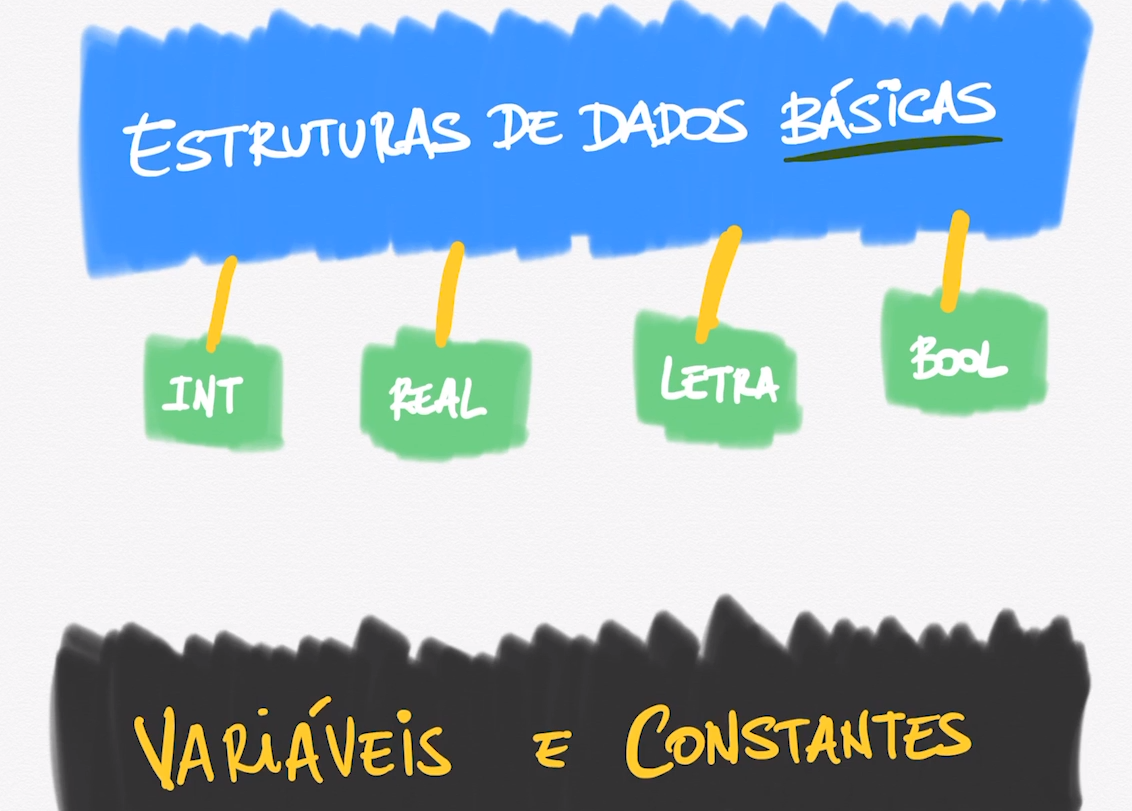 ESTRUTURAS DE DADOS BÁSICAS
INT REAL LETRA BOOL
VARIÁVEIS E CONSTANTES